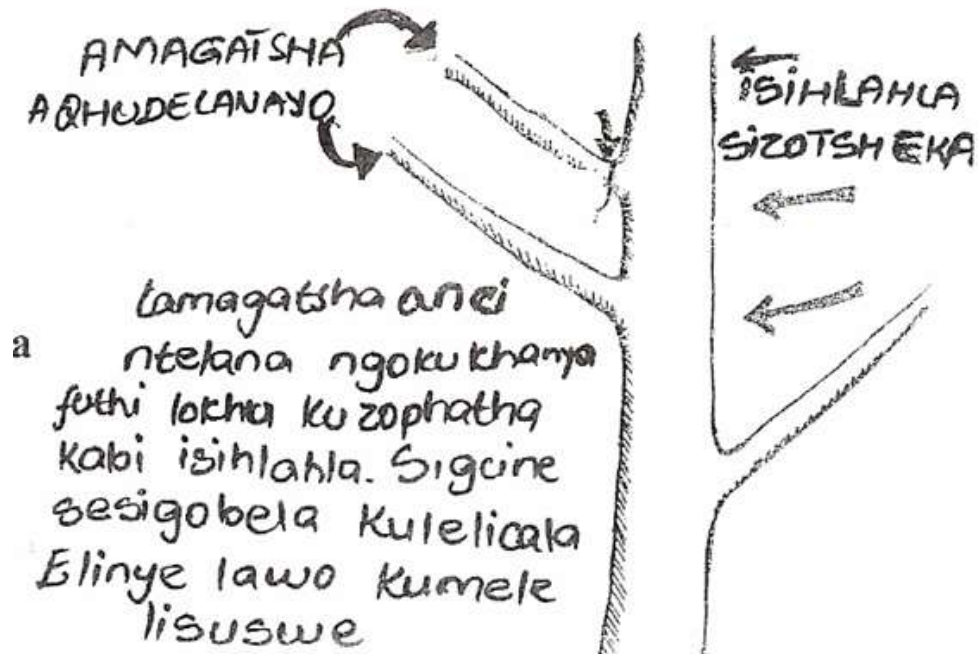 AMAGATSHA
AQHUDELANAYO
ISIHLAHLA
SIZOTSHEKA
Lamagatsha anci
ntelana ngokukhanya
futhi lokhu kuzophatha
Kabi isihlahla. Sigcine
sesigobela Kulelicala
Elinye lawo Kumele
lisuswe
a